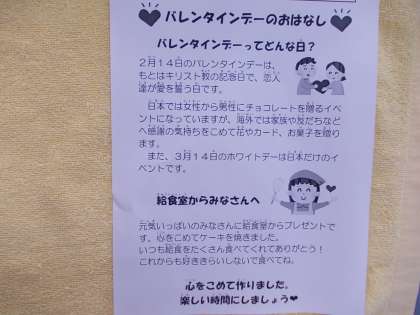 バレンタインデーのおはなし
バレンタインデーってどんな日？
２月１４日のバレンタインデーは、
もとはキリスト教の記念日で、恋人
達が愛を誓う日です。
日本では女性から男性にチョコレートを贈るイベ
ントになっていますが、海外では家族や友だちなど
へ感謝の気持ちをこめて花やカード、お菓子を贈り
ます。
また、３月１４日のホワイトデーは日本だけのイ
ベントです。
給食室からみなさんへ
元気いっぱいのみなさんに給食室からプレゼントで
す。心をこめてケーキを焼きました。
いつも給食をたくさん食べてくれてありがとう！
これからも好ききらいしないで食べてね。
心をこめて作りました。
楽しい時間にしましょう❤